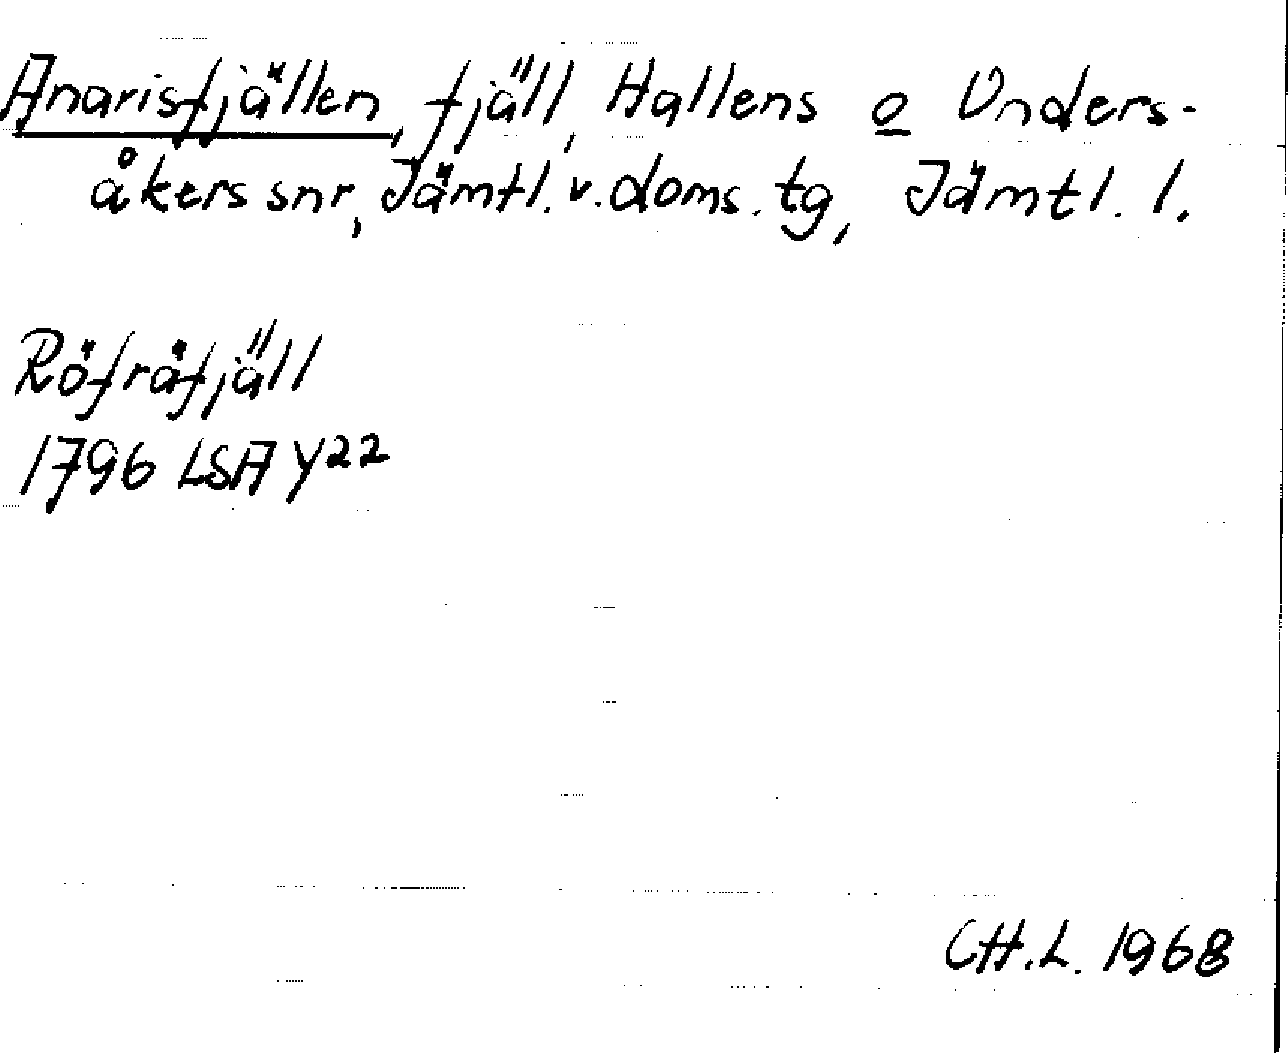 Anarisfjällen, fjäll, Hallens o Unders-
åkers snr, Jämtl. v. doms. tg, Jämtl. l.
Röfråfjäll
1796 LSA Y22
CH.L. 1968